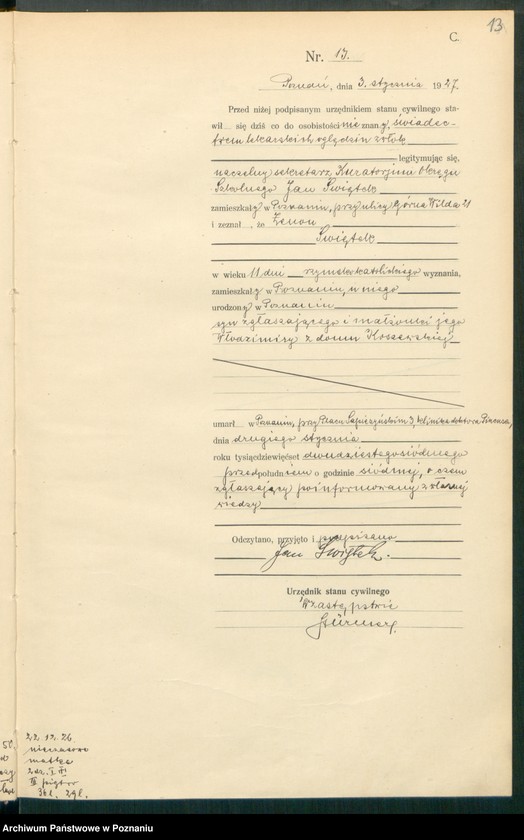 13
C
Nr. 13.
Poznań, dnia 3. stycznia 1927.
Przed niżej podpisanym urzędnikiem stanu cywilnego sta-
wił się dziś co do osobistości nieznany, świadec-
twem lekarskich oględzin zwłok
legitymując się,
naczelny sekretarz Kuratorjum Okręgu
Szkolnego Jan Świątek
zamieszkały w Poznaniu, przy ulicy Górna Wilda 21
i zeznał, że Zenon
Świątek
w wieku 11 dni rzymsko-katolickiego wyznania,
zamieszkały w Poznaniu, u niego
urodzony w Poznaniu
syn zgłaszającego i małżonki jego
Włodzimiry z domu Koszewskiej
umarł w Poznaniu, przy Placu Sapieżyńskim 3, klinika doktora
dnia drugiego stycznia
roku tysiącdziewięćset dwudziestego siódmego
przedpołudniem o godzinie siódmej, o czem
zgłaszający poinformowany z własnej
wiedzy
Odczytano, przyjęto i podpisano
Jan Świątek.
Urzędnik stanu cywilnego
W zastępstwie
Stürmer
22.12.26
matka
Archiwum Państwowe w Poznaniu